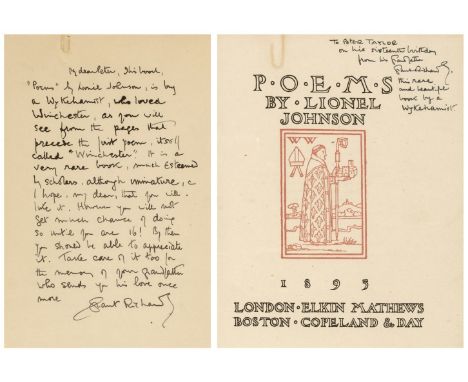 My dear Peter, This book,
"Poems" by Lionel Johnson, is by
a Wykehamist, who loved
Winchester, as you will
see from the pages that
precede the first poem, itself
called "Winchester". It is a
very rare book, much esteemed
by scholars, although immature,
I hope, my dear, that you will
like it. However you will not
get much chance of doing
so until you are 16! By then
you should be able to appreciate
it. Take care of it too for
the memory of your Grandfather
who sends you his love once
more
Grant Richards
To PETER TAYLOR
on his sixteenth birthday
from his Grandfather
Grant Richards,
this rare
and beautiful
book by a
Wykehamist
P·O·E·M·S
BY·LIONEL
JOHNSON
WW
1895
LONDON·ELKIN MATHEWS
BOSTON·COPELAND & DAY